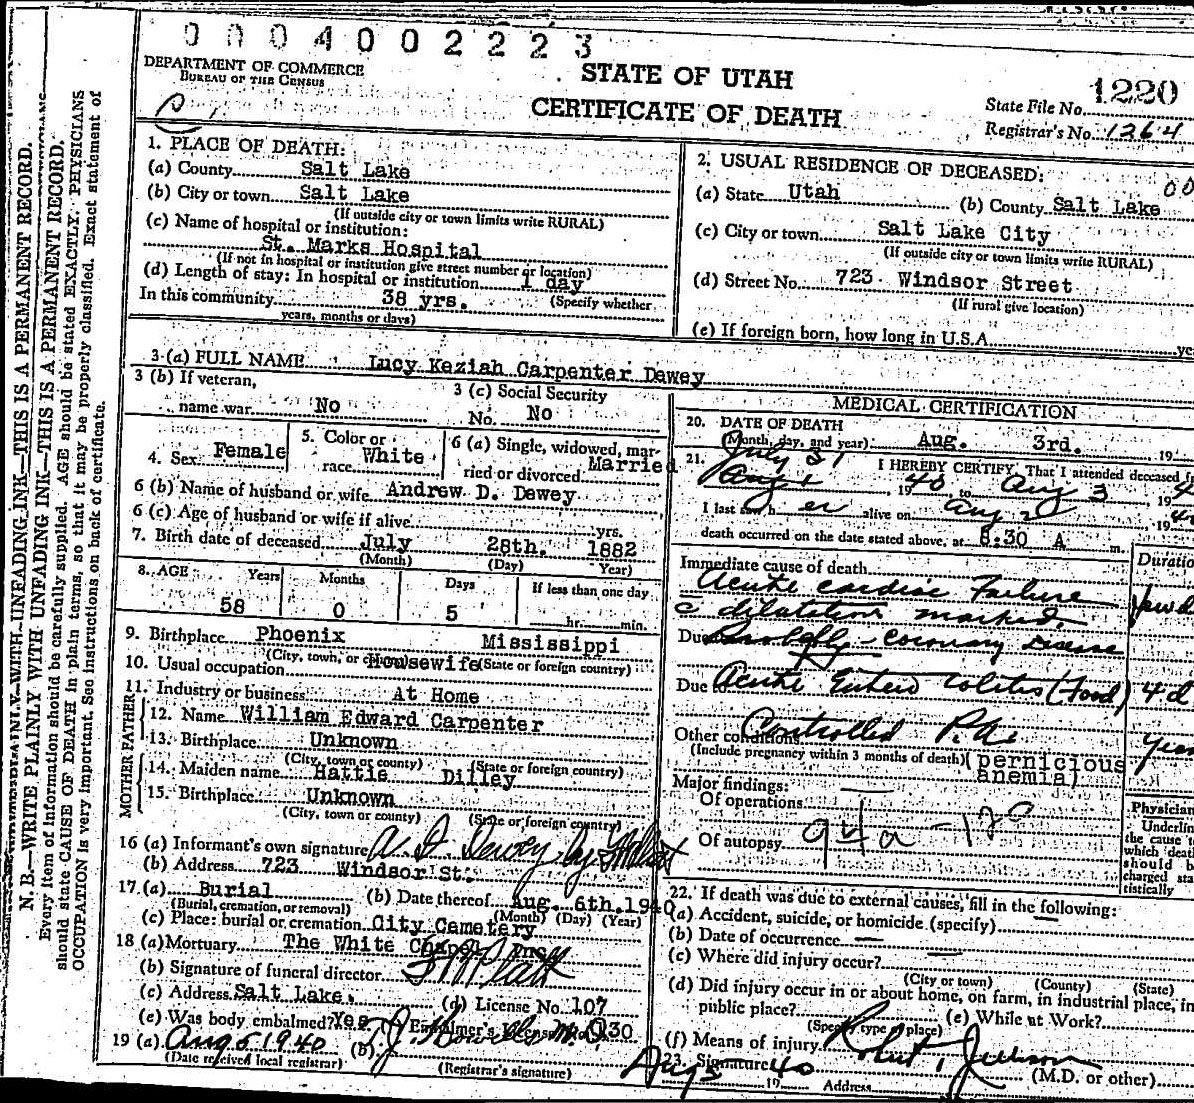 0004002223
DEPARTMENT OF COMMERCE
BUREAU OF THE CENSUS
STATE OF UTAH
CERTIFICATE OF DEATH
State File No. 1220
Registrar's No. 1264
N. B.—WRITE PLAINLY WITH UNFADING INK—THIS IS A PERMANENT RECORD.
Every item of information should be carefully supplied. AGE should be stated EXACTLY. PHYSICIANS
should state CAUSE OF DEATH in plain terms, so that it may be properly classified. Exact statement of
OCCUPATION is very important. See instructions on back of certificate.
1. PLACE OF DEATH:
(a) County Salt Lake
(b) City or town Salt Lake
(If outside city or town limits write RURAL)
(c) Name of hospital or institution:
St. Marks Hospital
(If not in hospital or institution give street number or location)
(d) Length of stay: In hospital or institution 1 day
In this community 38 yrs. (Specify whether
years, months or days)
2. USUAL RESIDENCE OF DECEASED:
00
(a) State Utah (b) County Salt Lake
(c) City or town Salt Lake City
(If outside city or town limits write RURAL)
(d) Street No. 723 Windsor Street
(If rural give location)
(e) If foreign born, how long in U.S.A.
3 (a) FULL NAME Lucy Keziah Carpenter Dewey
3 (b) If veteran,
name war No
3 (c) Social Security
No. No
4. Sex Female
5. Color or
race White
6 (a) Single, widowed, mar-
ried or divorced Married
6 (b) Name of husband or wife Andrew D. Dewey
6 (c) Age of husband or wife if alive yrs.
7. Birth date of deceased July 28th. 1882
(Month) (Day) Year)
8. AGE Years Months Days If less than one day
58 0 5 hr. min.
9. Birthplace Phoenix Mississippi
(City, town, or county) (State or foreign country)
10. Usual occupation Housewife
11. Industry or business At Home
FATHER
12. Name William Edward Carpenter
13. Birthplace Unknown
(City, town or county) (State or foreign country)
MOTHER
14. Maiden name Hattie Dilley
15. Birthplace Unknown
(City, town or county) (State or foreign country)
16 (a) Informant's own signature A D Dewey by
(b) Address 723 Windsor St.
17. (a) Burial (b) Date thereof Aug. 6th. 1940
(Burial, cremation, or removal) (Month) (Day) (Year)
(c) Place: burial or cremation City Cemetery
18 (a) Mortuary The White Chapel
(b) Signature of funeral director
(c) Address Salt Lake. (d) License No. 107
(e) Was body embalmed? Yes (f) Embalmer's License No. 230
19 (a) Aug 5 1940 (b)
(Date received local registrar) (Registrar's signature)
MEDICAL CERTIFICATION
20. DATE OF DEATH
(Month, day, and year) Aug. 3rd. 19
21. July 31 I HEREBY CERTIFY, That I attended deceased
Aug 1, 1940 to Aug 3, 19
I last saw h er alive on Aug 2 19
death occurred on the date stated above, at 8:30 A m.
Immediate cause of death
Acute cardiac Failure
c dilatation marked.
Due to Probably - coronary Disease
Due to Acute Entero Colitis (food) 4 d
Other conditions Controlled P.A.
(Include pregnancy within 3 months of death) (pernicious
anemia)
Major findings:
Of operations
Of autopsy 94a - 120
Physician
Underline
the cause to
which death
should
charged sta-
tistically
22. If death was due to external causes, fill in the following:
(a) Accident, suicide, or homicide (specify) —
(b) Date of occurrence —
(c) Where did injury occur? —
(City or town) (County) (State)
(d) Did injury occur in or about home, on farm, in industrial place, in
public place? (e) While at Work?
(Specify type of place)
(f) Means of injury
23. Signature Robert (M.D. or other)
Aug 5 1940 Address